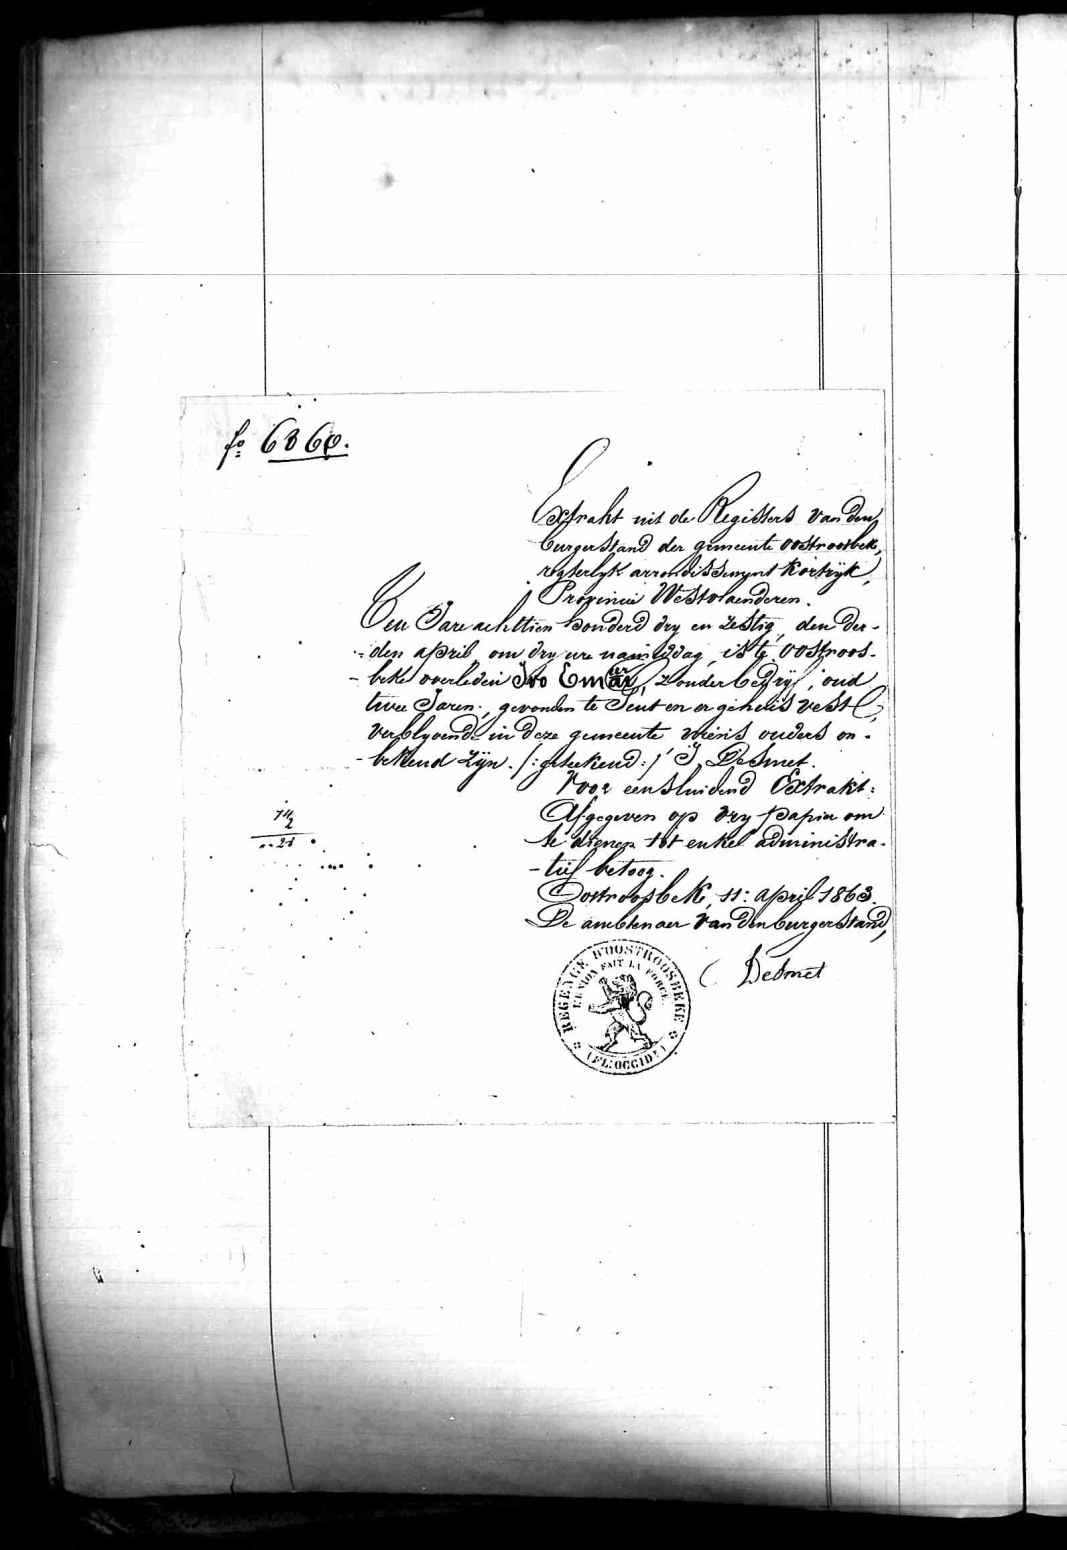 fo 6360.
Extrakt uit de Registers van den
burgerstand der gemeente oostroosbeke,
regterlyk arrondissement Kortryk,
Provincie Westvlaenderen.
Ten Jare achttien honderd dry en zestig, den der-
-den april om dry ure namiddag, is te oostroos-
-beke overleden Ivo Emar, zonder bedryf, oud
twee Jaren, gevonden te Gent en er gehuisvest
verblyvende in deze gemeente wiens ouders on-
-bekend zyn. /:geteekend:/ J, DeSmet.
Voor eensluidend Extrakt:
Afgegeven op vry papier om
te dienen tot enkel administra-
-tief betoog.
Oostroosbeke, 11: april 1863.
De ambtenaer van den burgerstand,
Desmet
REGENCE D'OOSTROOSBEKE
L'UNION FAIT LA FORCE
(FL: OCCID:)